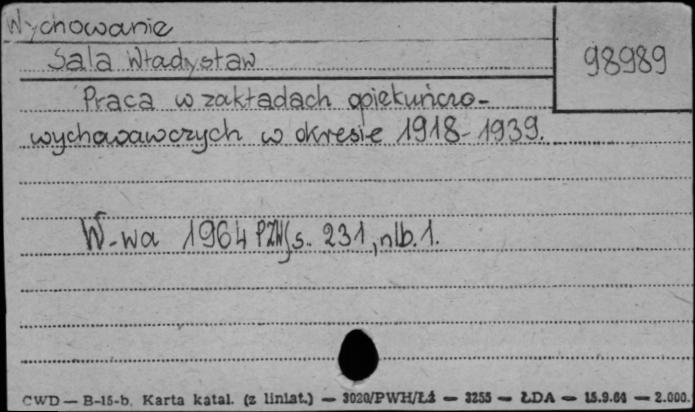 Wychowanie
98989
Sala Władysław
Praca w zakładach opiekuńczo-
wychowawczych w okresie 1918-1939.
W-wa 1964 PZWS s. 231, nlb. 1.
CWD — B-15-b. Karta katal. (z liniat.) — 3020/PWH/Łź — 3255 — ŁDA — 15.9.64 — 2.000.